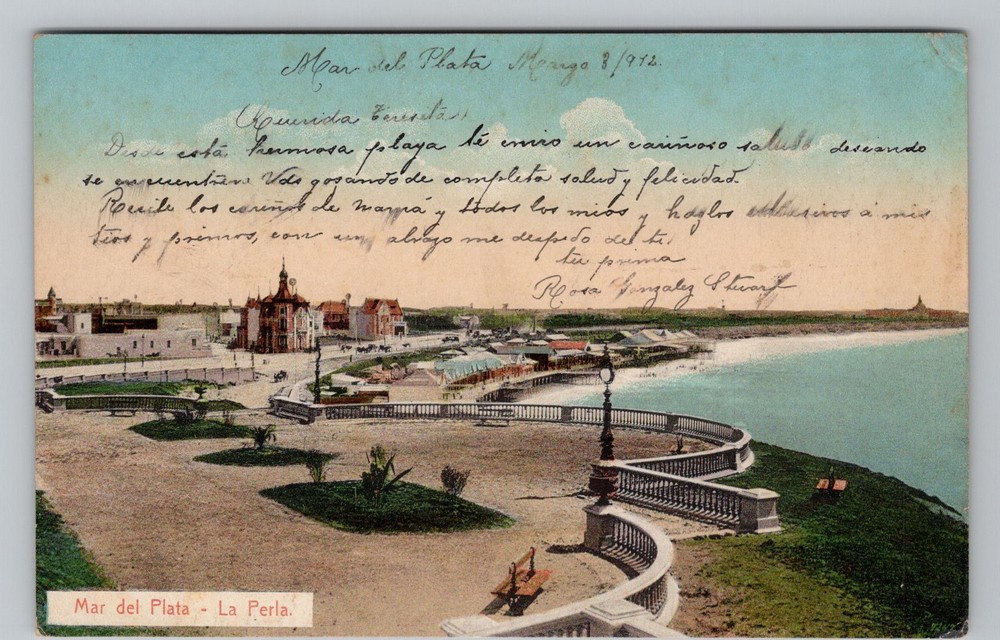 Mar del Plata Marzo 8/912.
Querida Teresita,
Desde está hermosa playa té enviο un cariñoso saludo deseando
se encuentren Vds gosando de completa salud y felicidad.
Recibe los cariños de mamá y todos los mios y haslos extensivos á mis
tios y primos, con un abrazo me despido de ti.
tu prima
Rosa Gonzalez Stuart
Mar del Plata - La Perla.